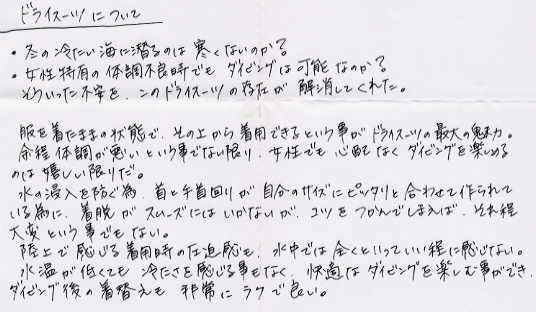 ドライスーツについて
・冬の冷たい海に潜るのは寒くないのか?
・女性特有の体調不良時でもダイビングは可能なのか?
そういった不安を、このドライスーツの存在が解消してくれた。
服を着たままの状態で、その上から着用できるという事がドライスーツの最大の魅力。
余程体調が悪いという事でない限り、女性でも心配なくダイビングを楽しめる
のは嬉しい限りだ。
水の浸入を防ぐ為、首と手首回りが自分のサイズにピッタリと合わせて作られて
いる為に、着脱がスムーズにはいかないが、コツをつかんでしまえば、それ程
大変という事でもない。
陸上で感じる着用時の圧迫感も、水中では全くといっていい程に感じない。
水温が低くても冷たさを感じる事もなく、快適なダイビングを楽しむ事ができ、
ダイビング後の着替えも非常にラクで良い。